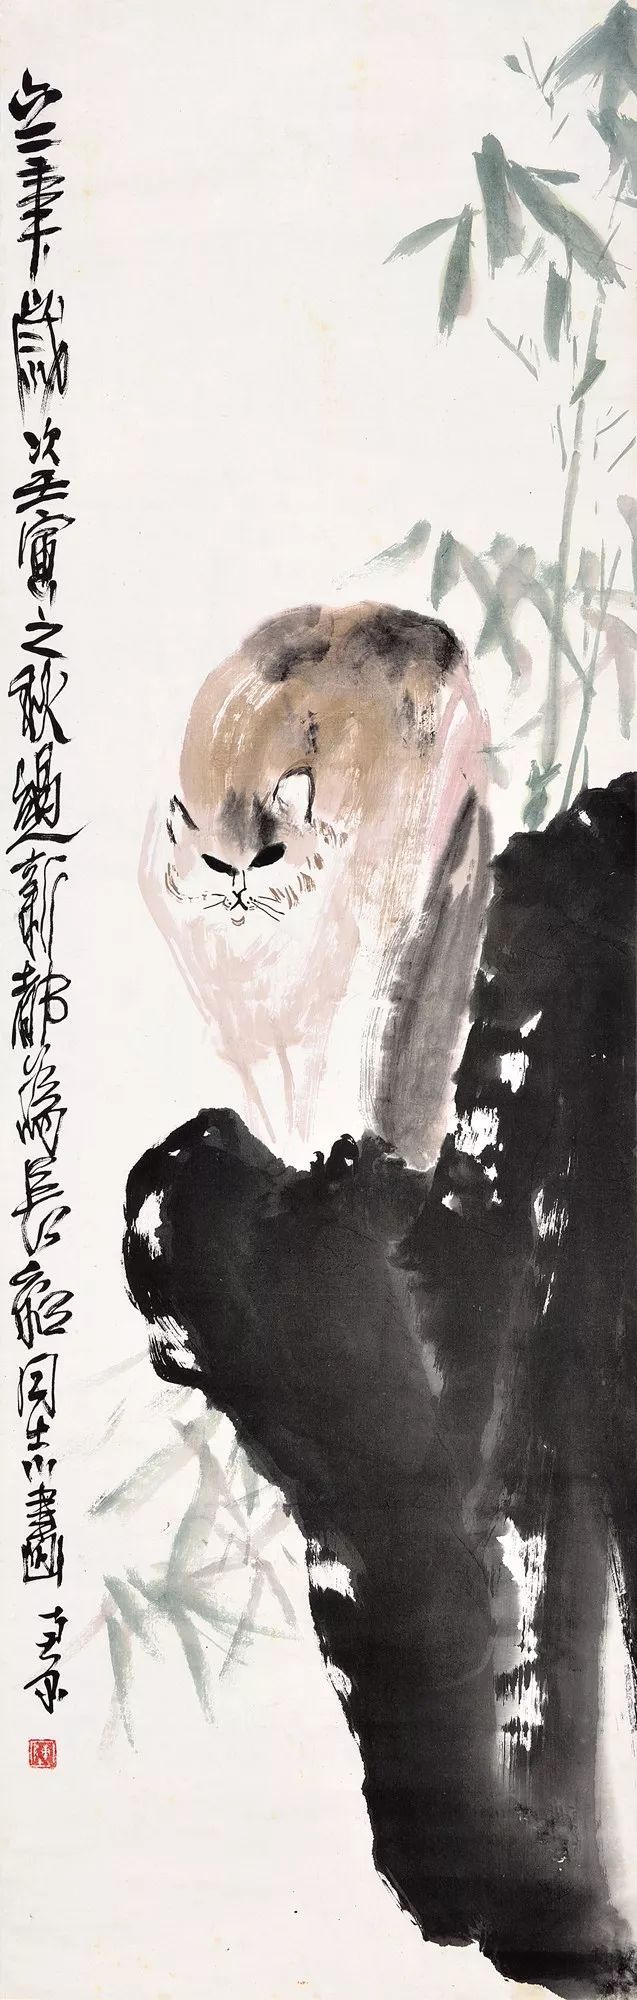 六二年歲次壬寅之秋過新都為長船同志畫 南原